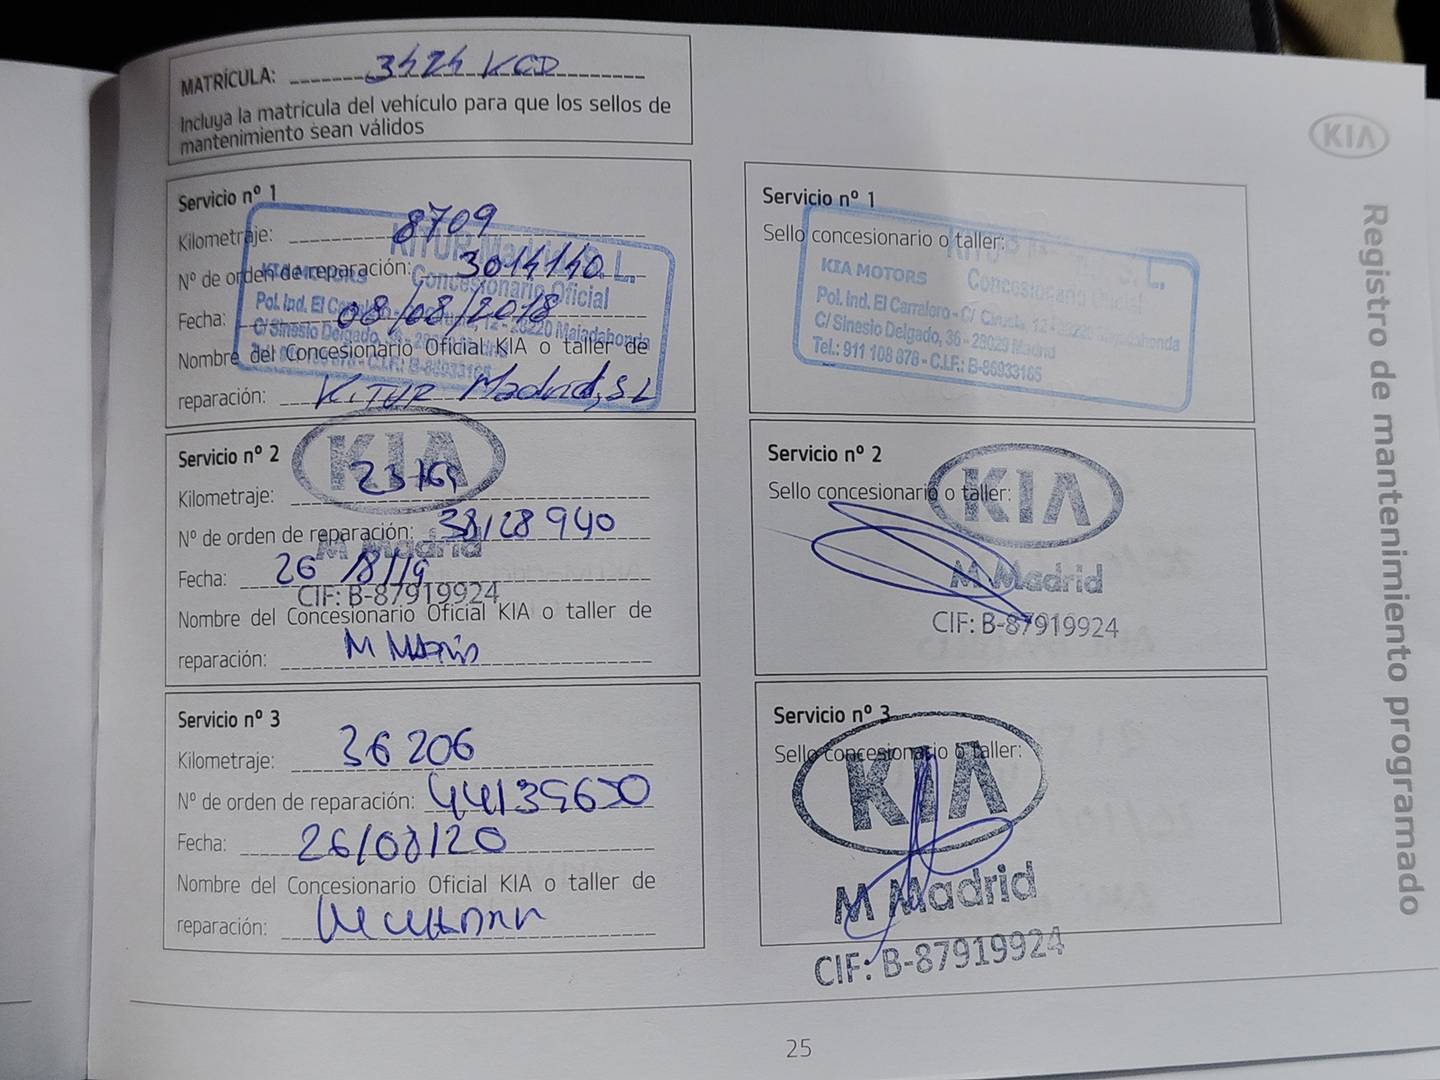 MATRÍCULA: 3424 KCD
Incluya la matrícula del vehículo para que los sellos de
mantenimiento sean válidos
KIA
Registro de mantenimiento programado
Servicio nº 1
Kilometraje: 8709
Nº de orden de reparación: 3014140
Fecha: 08/08/2018
Nombre del Concesionario Oficial KIA o taller de
reparación: KITUR Madrid, SL
KITUR Madrid S.L.
KIA MOTORS Concesionario Oficial
Pol. Ind. El 12 - 28220 Majadahonda
C/ Sinesio Delgado, 36 -
C.I.F.: B-86933165
Servicio nº 1
Sello concesionario o taller:
S.L.
KIA MOTORS Concesionario Oficial
Pol. Ind. El Carralero - C/ 12 - 28220 Majadahonda
C/ Sinesio Delgado, 36 - 28029 Madrid
Tel.: 911 108 878 - C.I.F.: B-86933165
Servicio nº 2
Kilometraje: 23169
Nº de orden de reparación: 38128940
Fecha: 26/8/19
Nombre del Concesionario Oficial KIA o taller de
reparación: M MADRID
KIA
M Madrid
CIF: B-87919924
Servicio nº 2
Sello concesionario o taller:
KIA
M Madrid
CIF: B-87919924
Servicio nº 3
Kilometraje: 36206
Nº de orden de reparación: 44139650
Fecha: 26/08/20
Nombre del Concesionario Oficial KIA o taller de
reparación:
Servicio nº 3
Sello concesionario o taller:
KIA
M Madrid
CIF: B-87919924
25